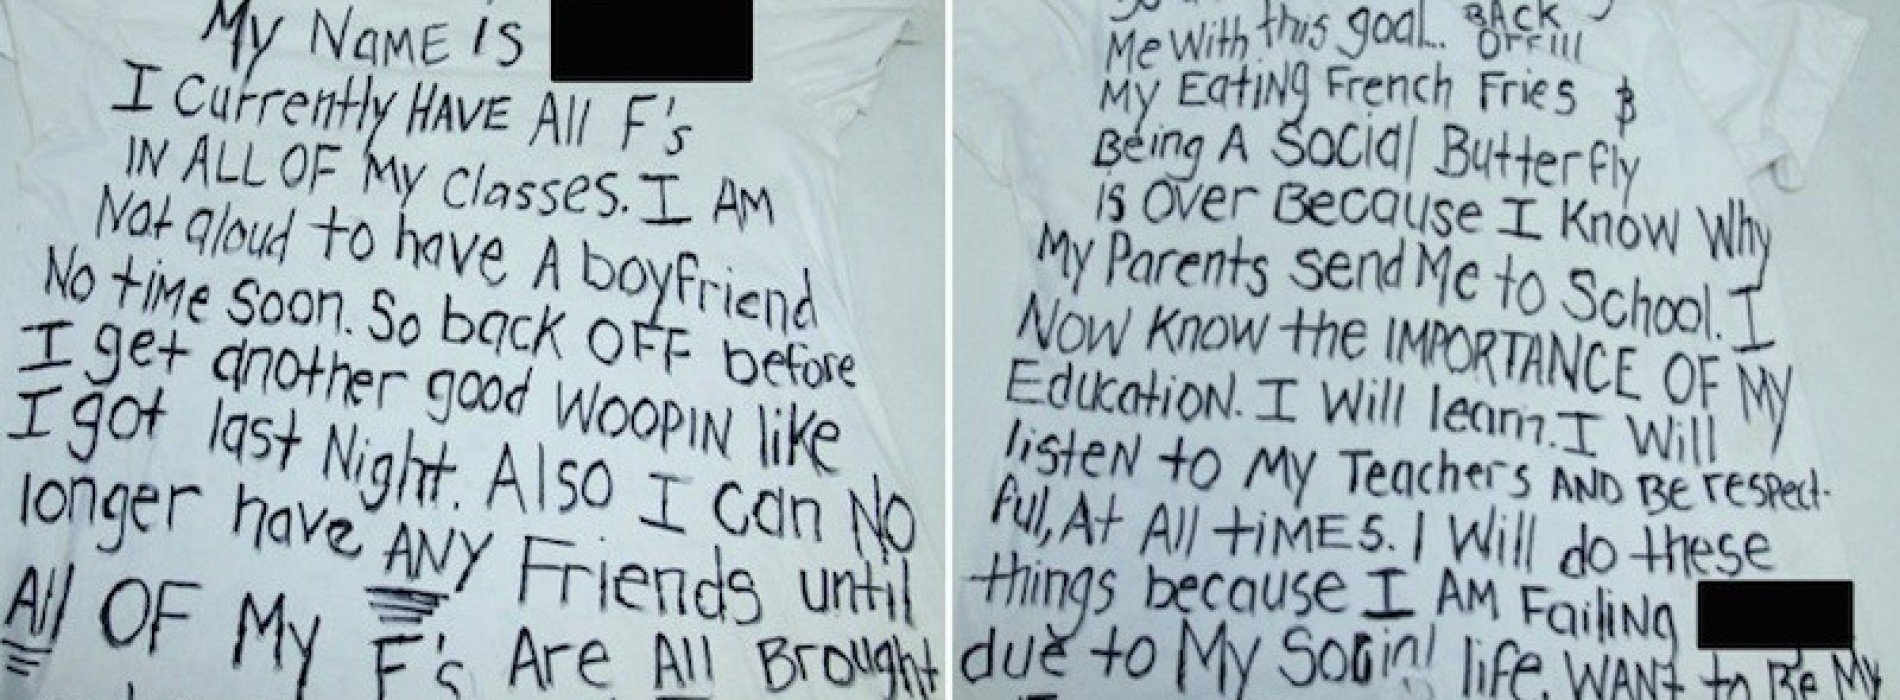 My NAME is
I Currently HAVE All F's
IN ALL OF My Classes. I AM
Not aloud to have A boyfriend
No time Soon. So back OFF before
I get another good WOOPIN like
I got last Night. Also I can NO
longer have ANY Friends until
All OF My F's Are All Brought
Me With this goal.. BACK
OFF!!!
My Eating French Fries &
Being A Social Butterfly
is Over Because I Know Why
My Parents send Me to School. I
Now Know the IMPORTANCE OF My
Education. I Will learn. I Will
listen to My Teachers AND Be respect-
ful, At All tiMES. I Will do these
things because I AM Failing
due to My Social life. WANt to Be My